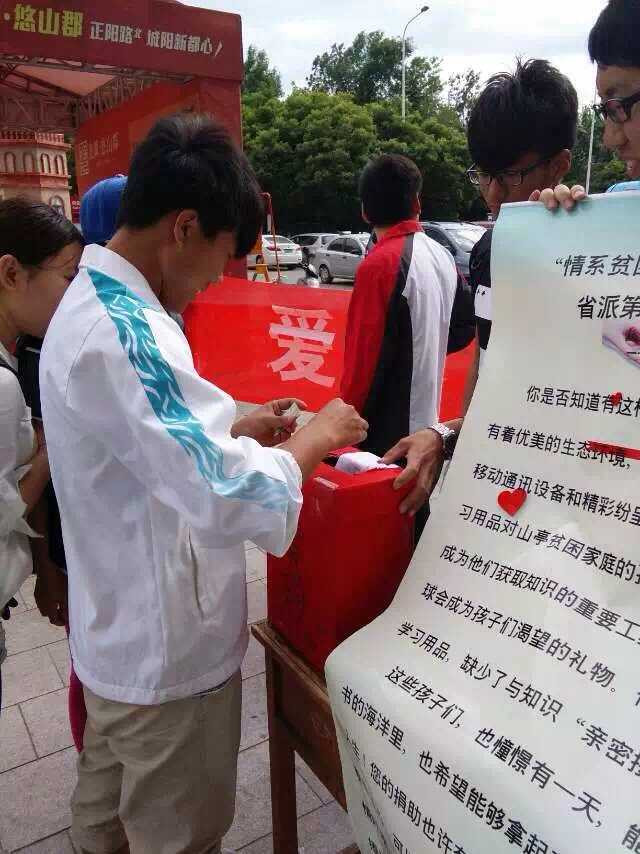 ·悠山郡 正阳路北 城阳新都心！
爱
“情系贫
省派第
你是否知道有这样
有着优美的生态环境，
移动通讯设备和精彩纷呈
习用品对山亭贫困家庭的孩
成为他们获取知识的重要工
球会成为孩子们渴望的礼物。
学习用品，缺少了与知识“亲密接
这些孩子们，也憧憬有一天，能
书的海洋里，也希望能够拿起
您的捐助也许
可以